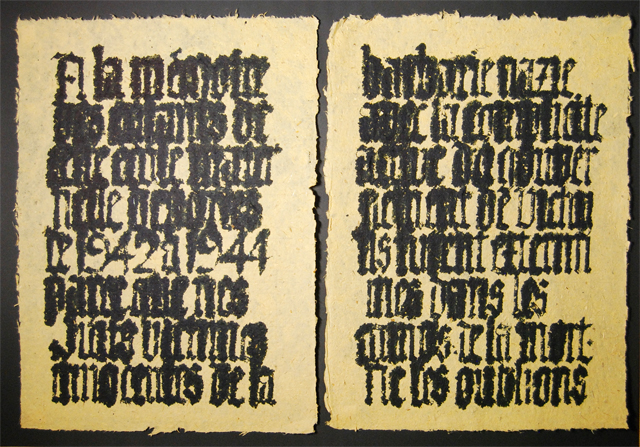 A la mémoire
des enfants de
cette école mater
nelle déportés
de 1942 à 1944
parce que nés
Juifs victimes
innocentes de la
barbarie nazie
avec la complicité
active du gouver
nement de Vichy
Ils furent extermi
nés dans les
camps de la mort.
Ne les oublions